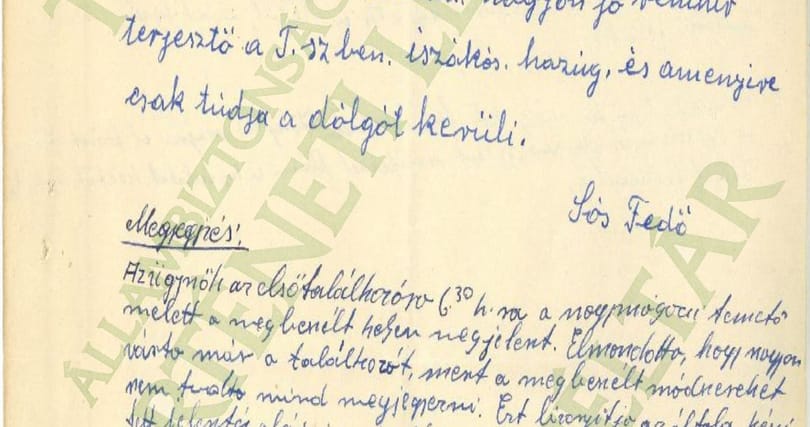 nagyon jó rémhír
terjesztő a T.sz ben. iszákós. hazúg, és amenyire
csak túdja a dólgót kerüli.
Sós Fedő
Megjegyzés:
Azügynök az elsőtalálkozóra 6.30 h.-ra a nagymágocsi temető
melett a megbeszélt helyen megjelent. Elmondotta, hogy nagyon
várta már a találkozót, mert a megbeszélt módszereket
nem tudta mind megjegyezni. Ezt bizonyitja az általa
tett jelentés
ÁLLAMBIZTONSÁG
TÖRTÉNETI LE
ÉLTÁR